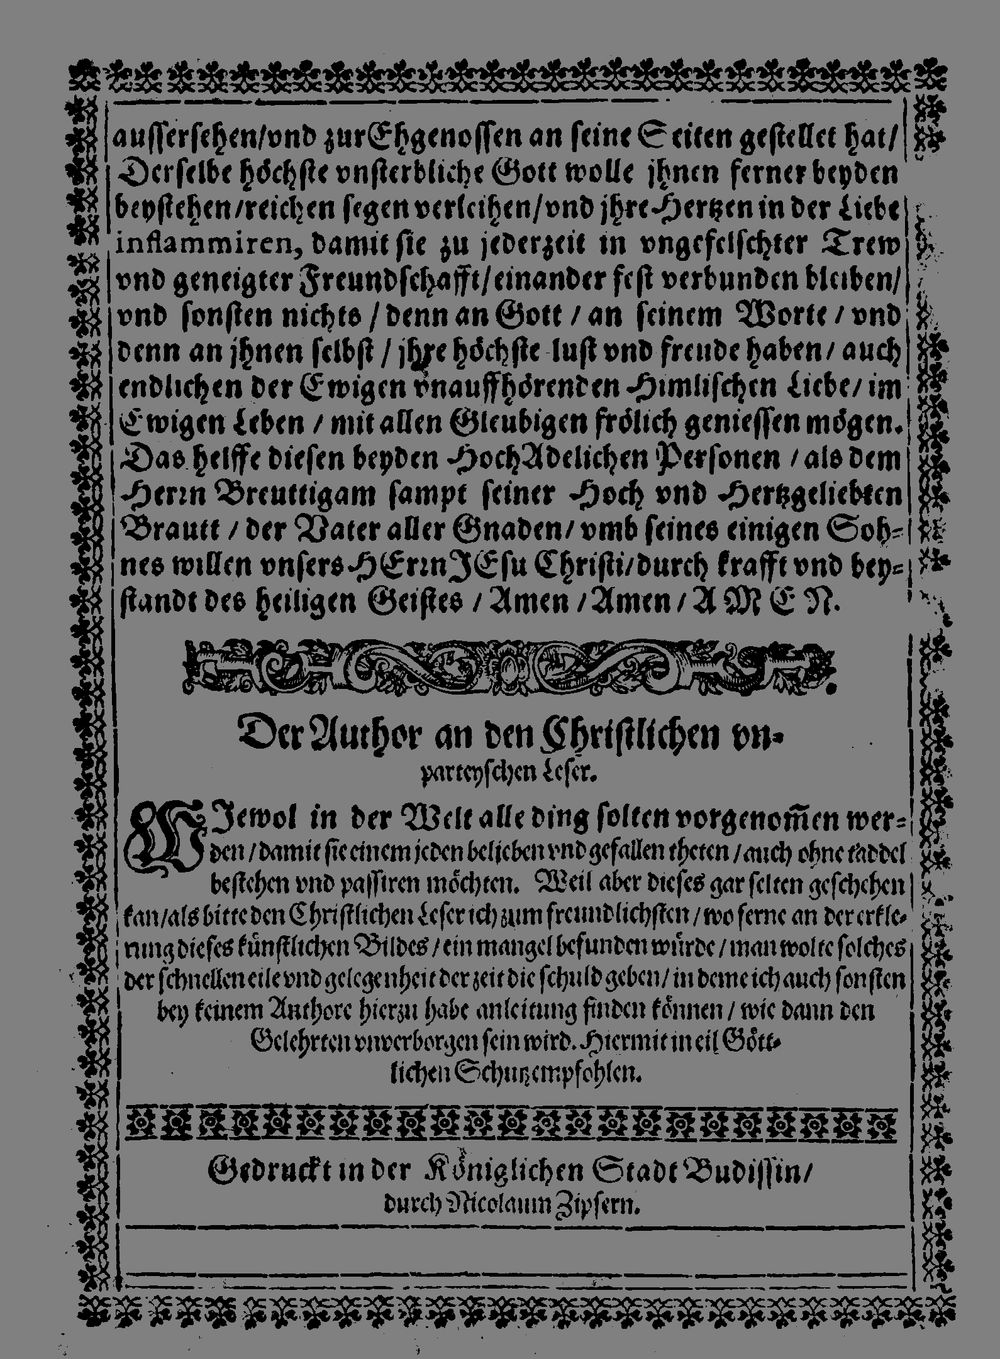 ausserſehen/vnd zur Ehgenoſſen an ſeine Seiten geſtellet hat/
Derſelbe höchſte vnſterbliche Gott wolle jhnen ferner beyden
beyſtehen/reichen ſegen verleihen/vnd jhre Hertzen in der Liebe
inflammiren, damit ſie zu jederzeit in vngefelſchter Trew
vnd geneigter Freundſchafft/einander feſt verbunden bleiben/
vnd ſonſten nichts / denn an Gott / an ſeinem Worte / vnd
denn an jhnen ſelbſt / jhre höchſte luſt vnd freude haben / auch
endlichen der Ewigen vnauffhörenden Himliſchen Liebe/ im
Ewigen Leben / mit allen Gleubigen frölich genieſſen mögen.
Das helffe dieſen beyden HochAdelichen Perſonen / als dem
Herrn Breuttigam ſampt ſeiner Hoch vnd Hertzgeliebten
Brautt / der Vater aller Gnaden/ vmb ſeines einigen Soh-
nes willen vnſers HErrn JEſu Chriſti/durch krafft vnd bey-
ſtandt des heiligen Geiſtes / Amen / Amen / A M E N.
Der Author an den Chriſtlichen vn-
parteyſchen Leſer.
WJewol in der Welt alle ding ſolten vorgenom̃en wer-
den / damit ſie einem jeden belieben vnd gefallen theten / auch ohne taddel
beſtehen vnd paſſiren möchten. Weil aber dieſes gar ſelten geſchehen
kan/als bitte den Chriſtlichen Leſer ich zum freundlichſten / wo ferne an der erkle-
rung dieſes künſtlichen Bildes / ein mangel befunden würde / man wolte ſolches
der ſchnellen eile vnd gelegenheit der zeit die ſchuld geben/ in deme ich auch ſonſten
bey keinem Authore hierzu habe anleitung finden können / wie dann den
Gelehrten vnverborgen ſein wird. Hiermit in eil Gött-
lichen Schutz empfohlen.
Gedruckt in der Königlichen Stadt Budiſſin/
durch Nicolaum Zipſern.